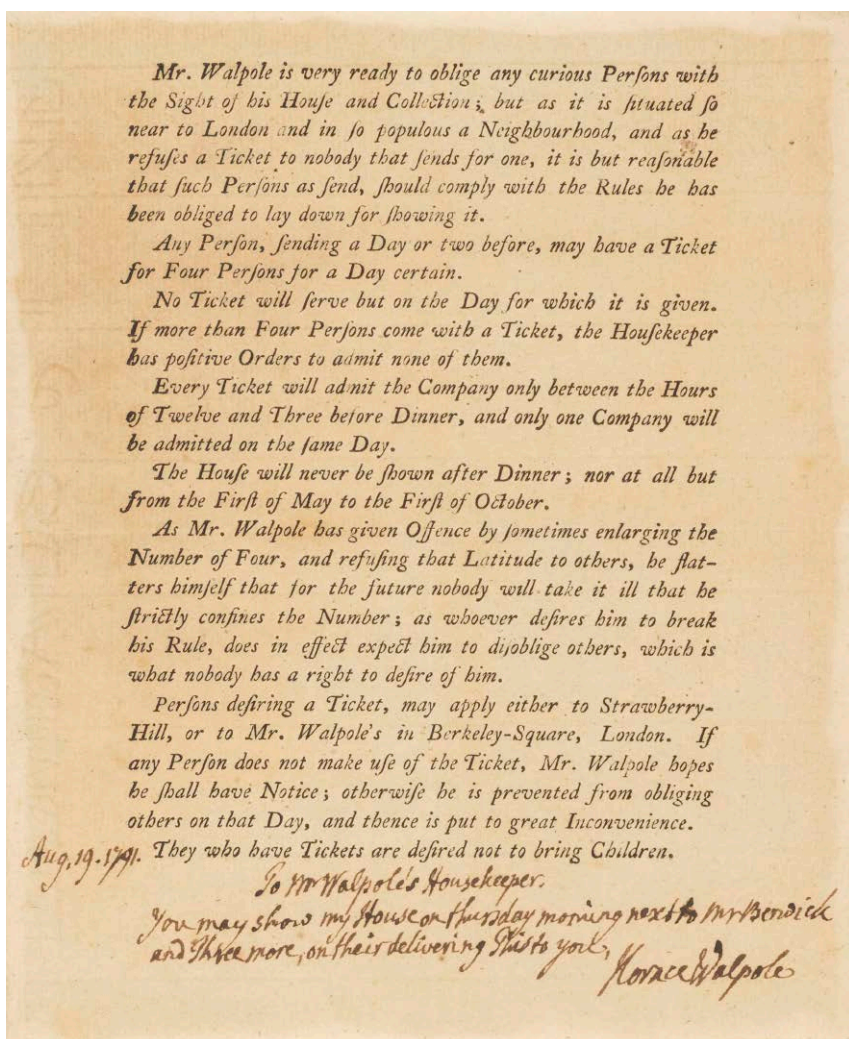 Mr. Walpole is very ready to oblige any curious Perſons with
the Sight of his Houſe and Collection; but as it is ſituated ſo
near to London and in ſo populous a Neighbourhood, and as he
refuſes a Ticket to nobody that ſends for one, it is but reaſonable
that ſuch Perſons as ſend, ſhould comply with the Rules he has
been obliged to lay down for ſhowing it.
Any Perſon, ſending a Day or two before, may have a Ticket
for Four Perſons for a Day certain.
No Ticket will ſerve but on the Day for which it is given.
If more than Four Perſons come with a Ticket, the Houſekeeper
has poſitive Orders to admit none of them.
Every Ticket will admit the Company only between the Hours
of Twelve and Three before Dinner, and only one Company will
be admitted on the ſame Day.
The Houſe will never be ſhown after Dinner; nor at all but
from the Firſt of May to the Firſt of October.
As Mr. Walpole has given Offence by ſometimes enlarging the
Number of Four, and refuſing that Latitude to others, he flat-
ters himſelf that for the future nobody will take it ill that he
ſtrictly confines the Number; as whoever deſires him to break
his Rule, does in effect expect him to diſoblige others, which is
what nobody has a right to deſire of him.
Perſons deſiring a Ticket, may apply either to Strawberry-
Hill, or to Mr. Walpole's in Berkeley-Square, London. If
any Perſon does not make uſe of the Ticket, Mr. Walpole hopes
he ſhall have Notice; otherwiſe he is prevented from obliging
others on that Day, and thence is put to great Inconvenience.
They who have Tickets are deſired not to bring Children.
Aug. 19. 1791.
To Mr Walpole's Housekeeper.
You may show my House on thursday morning next to Mr Berwick
and Three more, on their delivering This to you,
Horace Walpole